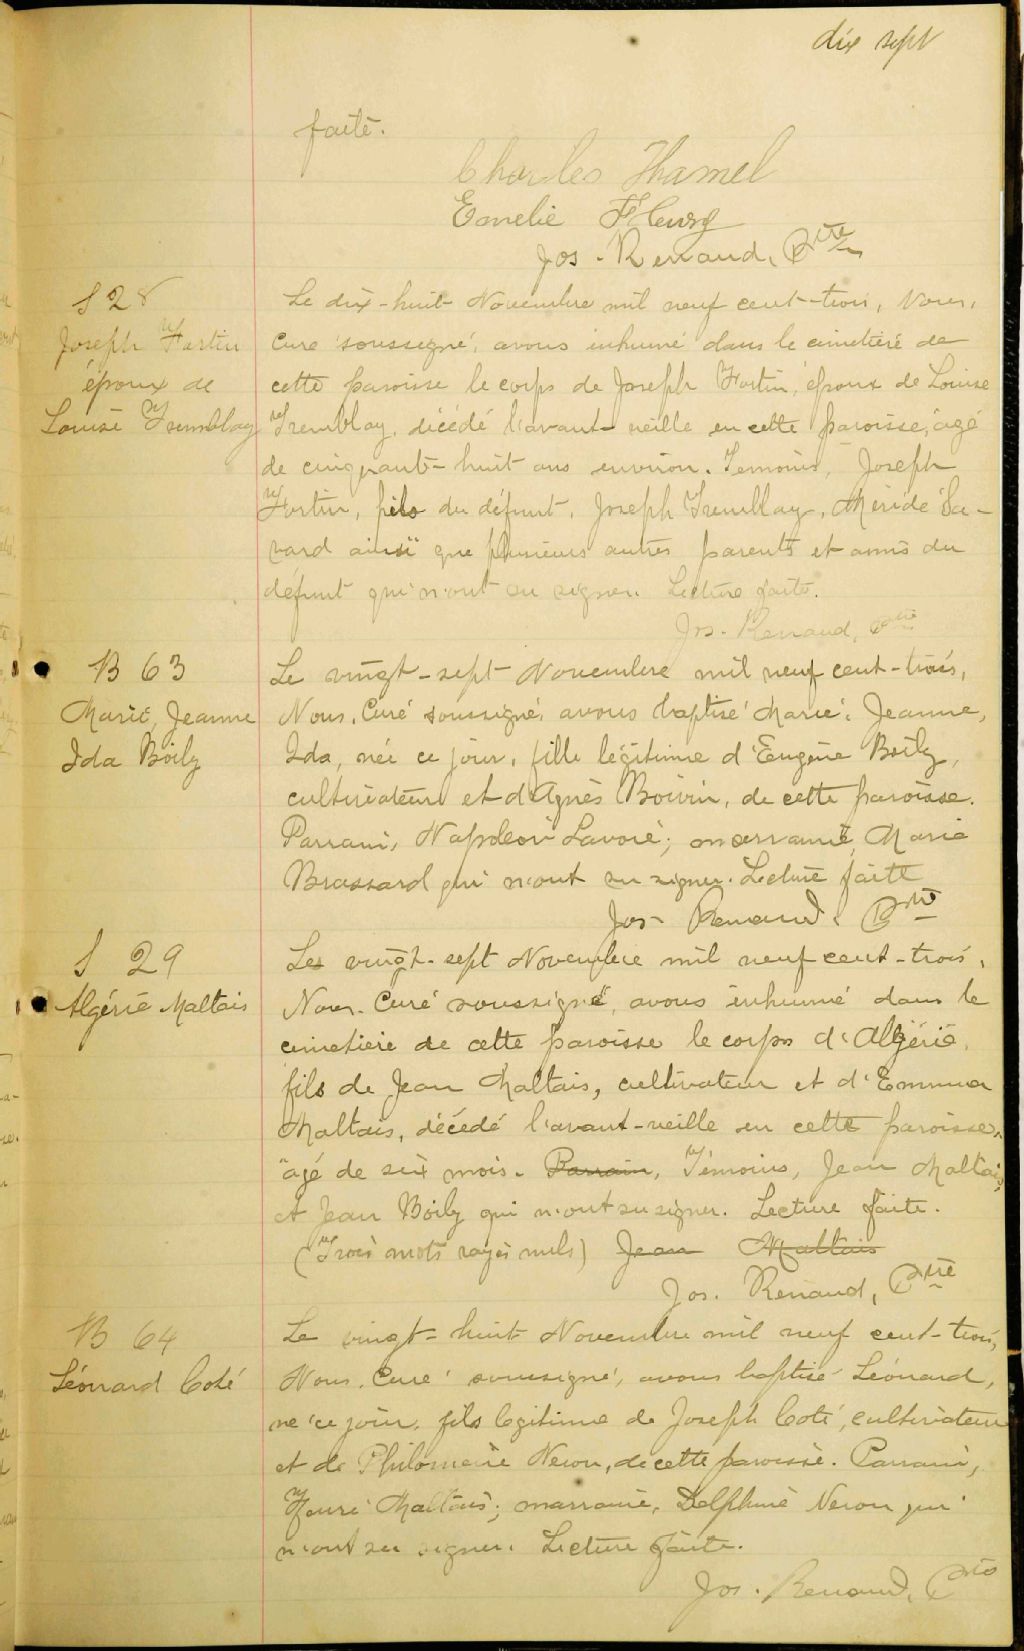 dix sept
faite.
Charles Hamel
Emelie Fleury
Jos. Renaud, Ptre
S 28
Joseph Fortin
époux de
Louise Tremblay
Le dix-huit Novembre mil neuf cent-trois, Nous,
Curé soussigné, avons inhumé dans le cimetière de
cette paroisse le corps de Joseph Fortin, époux de Louise
Tremblay, décédé l'avant-veille en cette paroisse, âgé
de cinquante-huit ans environ. Témoins, Joseph
Fortin, fils du défunt, Joseph Tremblay, Méridé Sa-
vard ainsi que plusieurs autres parents et amis du
défunt qui n'ont su signer. Lecture faite.
Jos. Renaud, Ptre
B 63
Marie, Jeanne
Ida Boily
Le vingt-sept Novembre mil neuf cent-trois,
Nous, Curé soussigné, avons baptisé Marie, Jeanne,
Ida, née ce jour, fille légitime d'Eugène Boily,
cultivateur et d'Agnès Boivin, de cette paroisse.
Parrain, Napoléon Lavoie; marraine, Marie
Brassard qui n'ont su signer. Lecture faite
Jos. Renaud, Ptre
S 29
Algérie Maltais
Le vingt-sept Novembre mil neuf cent-trois,
Nous, Curé soussigné, avons inhumé dans le
cimetière de cette paroisse le corps d'Algérie,
fils de Jean Maltais, cultivateur et d'Emma
Maltais, décédé l'avant-veille en cette paroisse,
âgé de six mois. Parrain, Témoins, Jean Maltais,
et Jean Boily qui n'ont su signer. Lecture faite.
(Trois mots rayés nuls) Jean Maltais
Jos. Renaud, Ptre
B 64
Léonard Coté
Le vingt-huit Novembre mil neuf cent-trois,
Nous, Curé soussigné, avons baptisé Léonard,
né ce jour, fils légitime de Joseph Coté, cultivateur
et de Philomène Neron, de cette paroisse. Parrain,
Henri Maltais; marraine, Delphine Neron qui
n'ont su signer. Lecture faite.
Jos. Renaud, Ptre